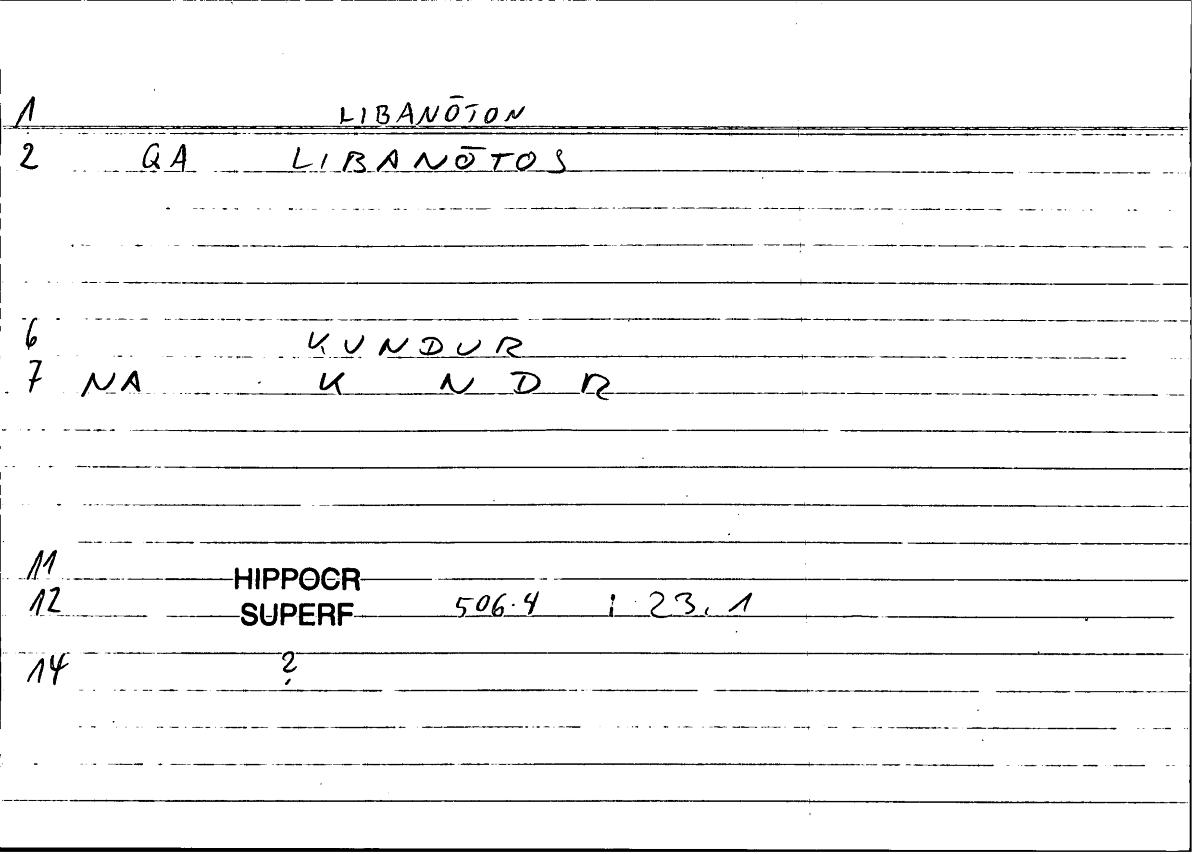 1 LIBANŌTON
2 QA LIBANŌTOS
6 KUNDUR
7 NA K NDR
11 HIPPOCR
12 SUPERF 506.4 ; 23.1
14 ?